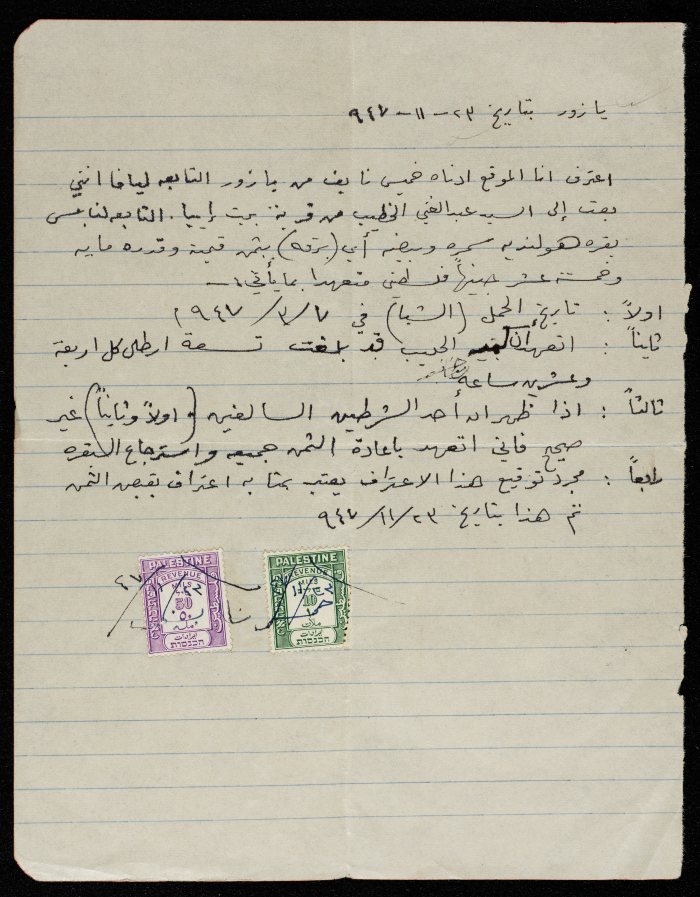 يازور بتاريخ ٢٣-١١-٩٤٧
اعترف انا الموقع ادناه خميس نايف من يازور التابعه ليافا انني
بعت إلى السيد عبد الغني الخطيب من قرية بيت إيبا. التابعه لنابلس
بقره هولنديه سمره وبيضه أي (برقه) بثمن قيمة وقدره مايه
وخمسة عشر جنيهاً فلسطيني متعهدا بما يأتي :-
اولاً : تاريخ الحمل (الشبا) في ٧/٣/١٩٤٧
ثانياً : اتعهد أن الحليب قد بلغت تسعة ارطال كل اربعة
وعشرين ساعة
ثالثاً : اذا ظهر ان أحد الشرطين السالفين (اولاً وثانياً) غير
صحيح فاني اتعهد باعادة الثمن جميعه واسترجاع البقره
رابعاً : مجرد توقيع هذا الاعتراف يعتبر بمثابه اعتراف بقبض الثمن
تم هذا بتاريخ ٢٣/١١/٩٤٧
PALESTINE
REVENUE
MILS
50
٥٠
ملاً
ايرادات
הכנסות
PALESTINE
REVENUE
MILS
10
ملات
ايرادات
הכנסות